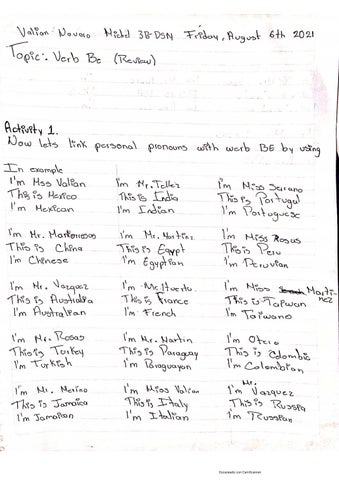 Valian Navarro Michel 3B-DSN Friday, August 6th 2021
Topic: Verb Be (Review)
Activity 1.
Now lets link personal pronouns with werb BE by using
In example
I'm Mss Valian I'm Mr. Tellez I'm Miss Serrano
This is Mexico This is India This is Portugal
I'm Mexican I'm Indian I'm Portuguese
I'm Mr. I'm Mr. Martinez I'm Miss Rosas
This is China This is Egypt This is Peru
I'm Chinese I'm Egyptian I'm Peruvian
I'm Mr. Vazquez I'm Mr. Huerta I'm Miss Martinez
This is Australia This is France This is Taiwan
I'm Australian I'm French I'm Taiwane
I'm Mr. Rosas I'm Mr. Martin I'm Otero
This is Turkey This is Paraguay This is Colombia
I'm Turkish I'm Paraguayan I'm Colombian
I'm Mr. Merino I'm Miss Valian I'm Mr. Vazquez
This is Jamaica This is Italy This is Russia
I'm Jamaican I'm Italian I'm Russian
Escaneado con CamScanner